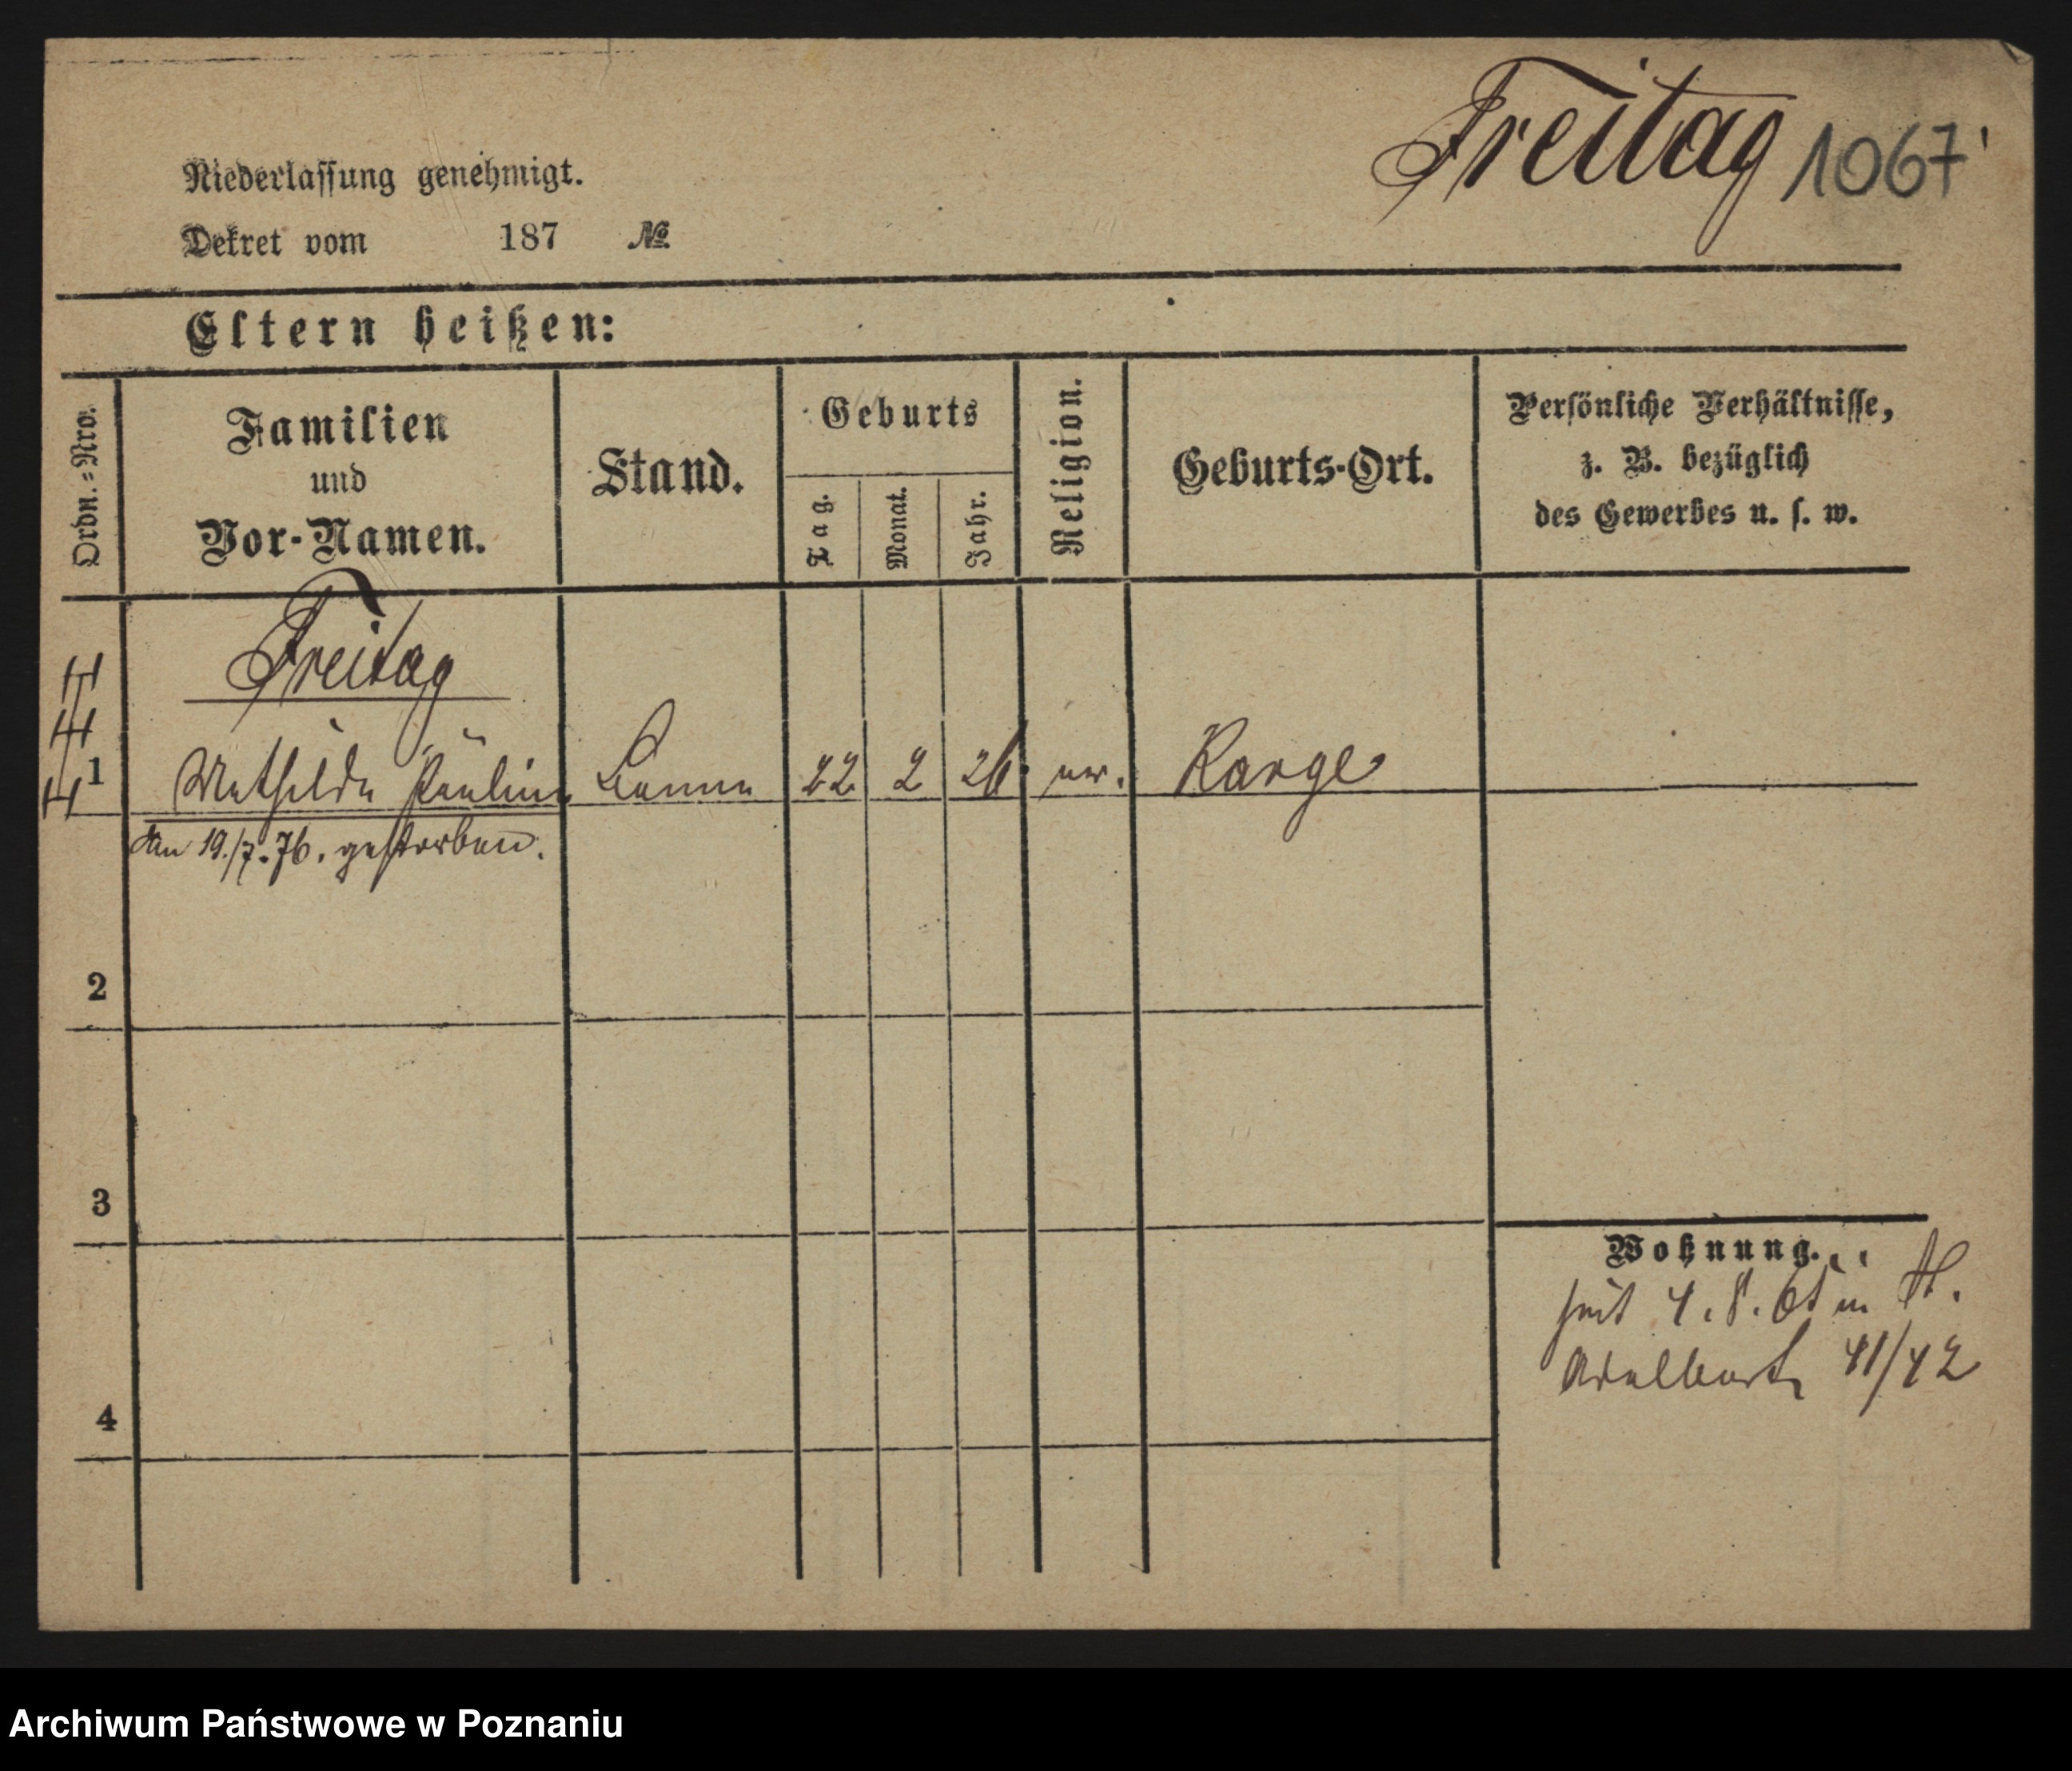 Freitag 1067
Niederlassung genehmigt.
Dekret vom 187 №
Eltern heißen:
Ordn.=Nro.
Familien
und
Vor-Namen.
Stand.
Geburts
Tag.
Monat.
Jahr.
Religion.
Geburts-Ort.
Persönliche Verhältnisse,
z. B. bezüglich
des Gewerbes u. s. w.
Freitag
1 Mathilde Pauline 22 2 26 Karge
Am 19./7.76. gestorben.
2
3
Wohnung.
seit 4.8. in St.
Adalbert 41/42
4
Archiwum Państwowe w Poznaniu